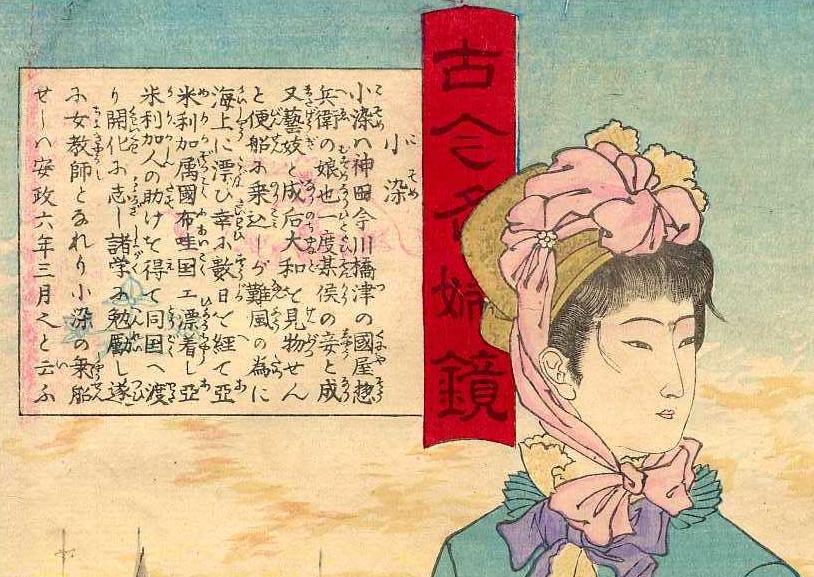 古今名婦鏡
小染
小染ハ神田今川橋津の國屋惣
兵衛の娘也一度某侯の妾と成
又藝妓と成后大和を見物せん
と便船に乗込しが難風の為に
海上に漂ひ幸に数日を経て亞
米利加属國布哇国エ漂着し亞
米利加人の助けを得て同国へ渡
り開化に志し諸学に勉励し遂
に女教師となれり小染の乗船
せしハ安政六年三月也と云ふ